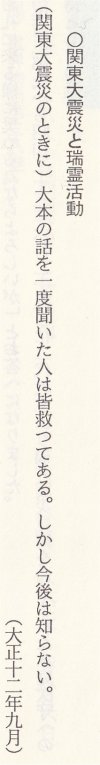 ○関東大震災と瑞霊活動
（関東大震災のときに）大本の話を一度聞いた人は皆救つてある。しかし今後は知らない。
（大正十二年九月）